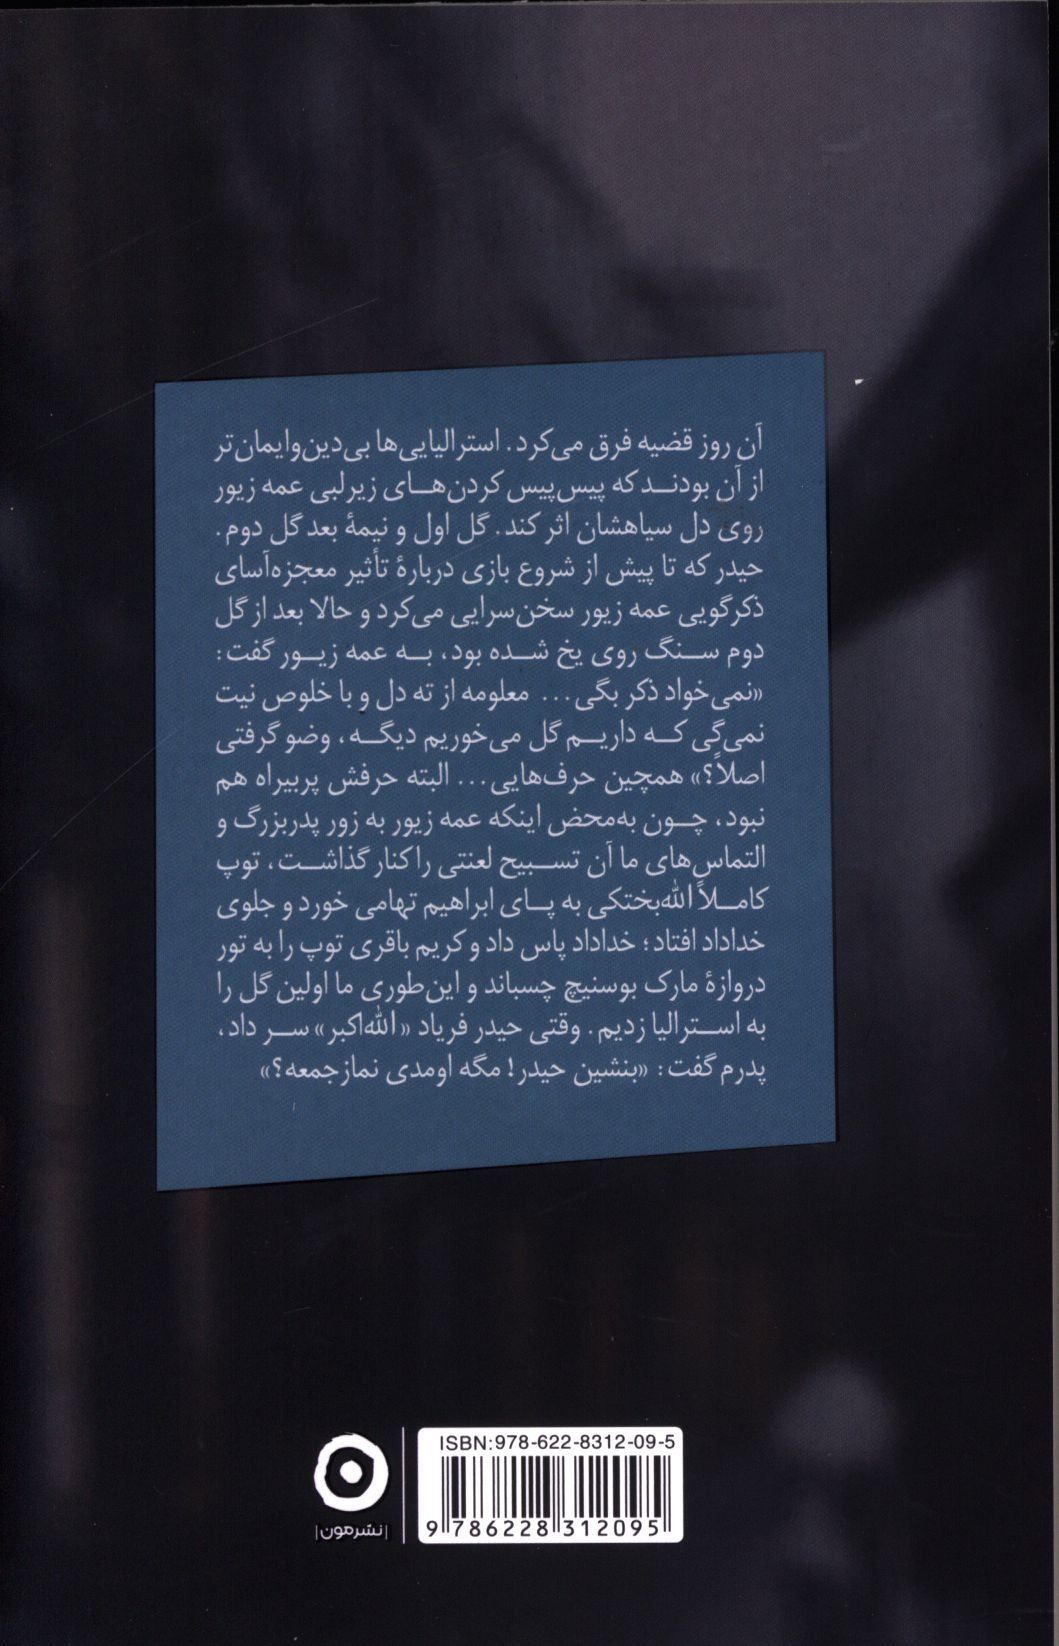 آن روز قضیه فرق می‌کرد. استرالیایی‌ها بی‌دین‌وایمان‌تر
از آن بودند که پیس‌پیس کردن‌های زیرلبی عمه زیور
روی دل سیاهشان اثر کند. گل اول و نیمۀ بعد گل دوم.
حیدر که تا پیش از شروع بازی دربارۀ تأثیر معجزه‌آسای
ذکرگویی عمه زیور سخن‌سرایی می‌کرد و حالا بعد از گل
دوم سنگ روی یخ شده بود، به عمه زیور گفت:
«نمی‌خواد ذکر بگی... معلومه از ته دل و با خلوص نیت
نمی‌گی که داریم گل می‌خوریم دیگه، وضو گرفتی
اصلاً؟» همچین حرف‌هایی... البته حرفش پربیراه هم
نبود، چون به‌محض اینکه عمه زیور به زور پدربزرگ و
التماس‌های ما آن تسبیح لعنتی را کنار گذاشت، توپ
کاملاً الله‌بختکی به پای ابراهیم تهامی خورد و جلوی
خداداد افتاد؛ خداداد پاس داد و کریم باقری توپ را به تور
دروازۀ مارک بوسنیچ چسباند و این‌طوری ما اولین گل را
به استرالیا زدیم. وقتی حیدر فریاد «الله‌اکبر» سر داد،
پدرم گفت: «بنشین حیدر! مگه اومدی نمازجمعه؟»
ISBN:978-622-8312-09-5
9 786228 312095
|نشرمون|